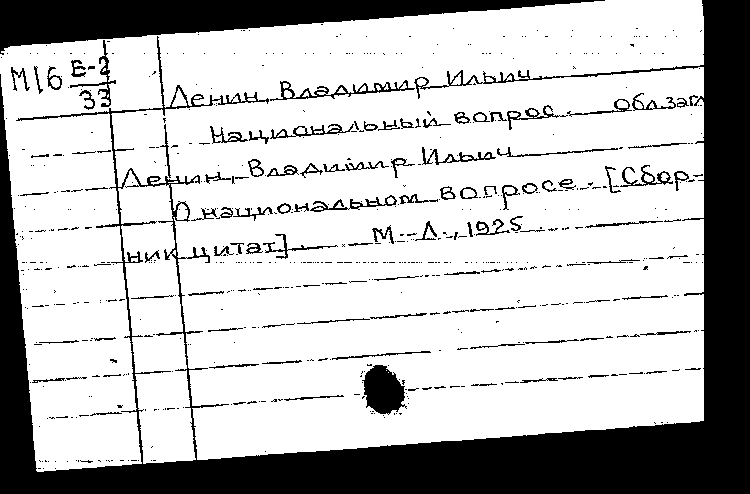 М16 Б-2
33
Ленин, Владимир Ильич.
Национальный вопрос. Обл.загл
Ленин, Владимир Ильич
О национальном вопросе. [Сбор-
ник цитат]. М.-Л., 1925.